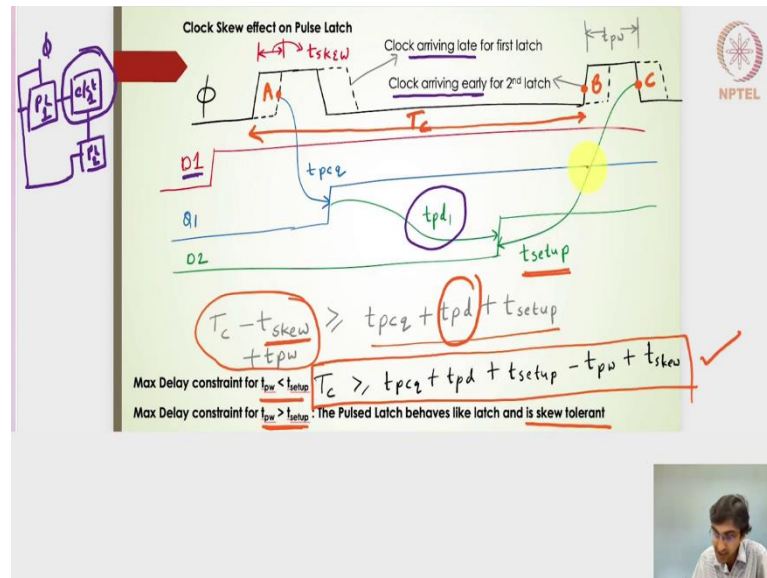 Clock Skew effect on Pulse Latch
ϕ
tskew
Clock arriving late for first latch
tpw
Clock arriving early for 2nd latch
A
B
C
ϕ
NPTEL
Tc
D1
tpcq
Q1
tpd1
D2
tsetup
Tc - tskew + tpw ≥ tpcq + tpd + tsetup
Max Delay constraint for tpw < tsetup Tc ≥ tpcq + tpd + tsetup - tpw + tskew ✓
Max Delay constraint for tpw > tsetup : The Pulsed Latch behaves like latch and is skew tolerant